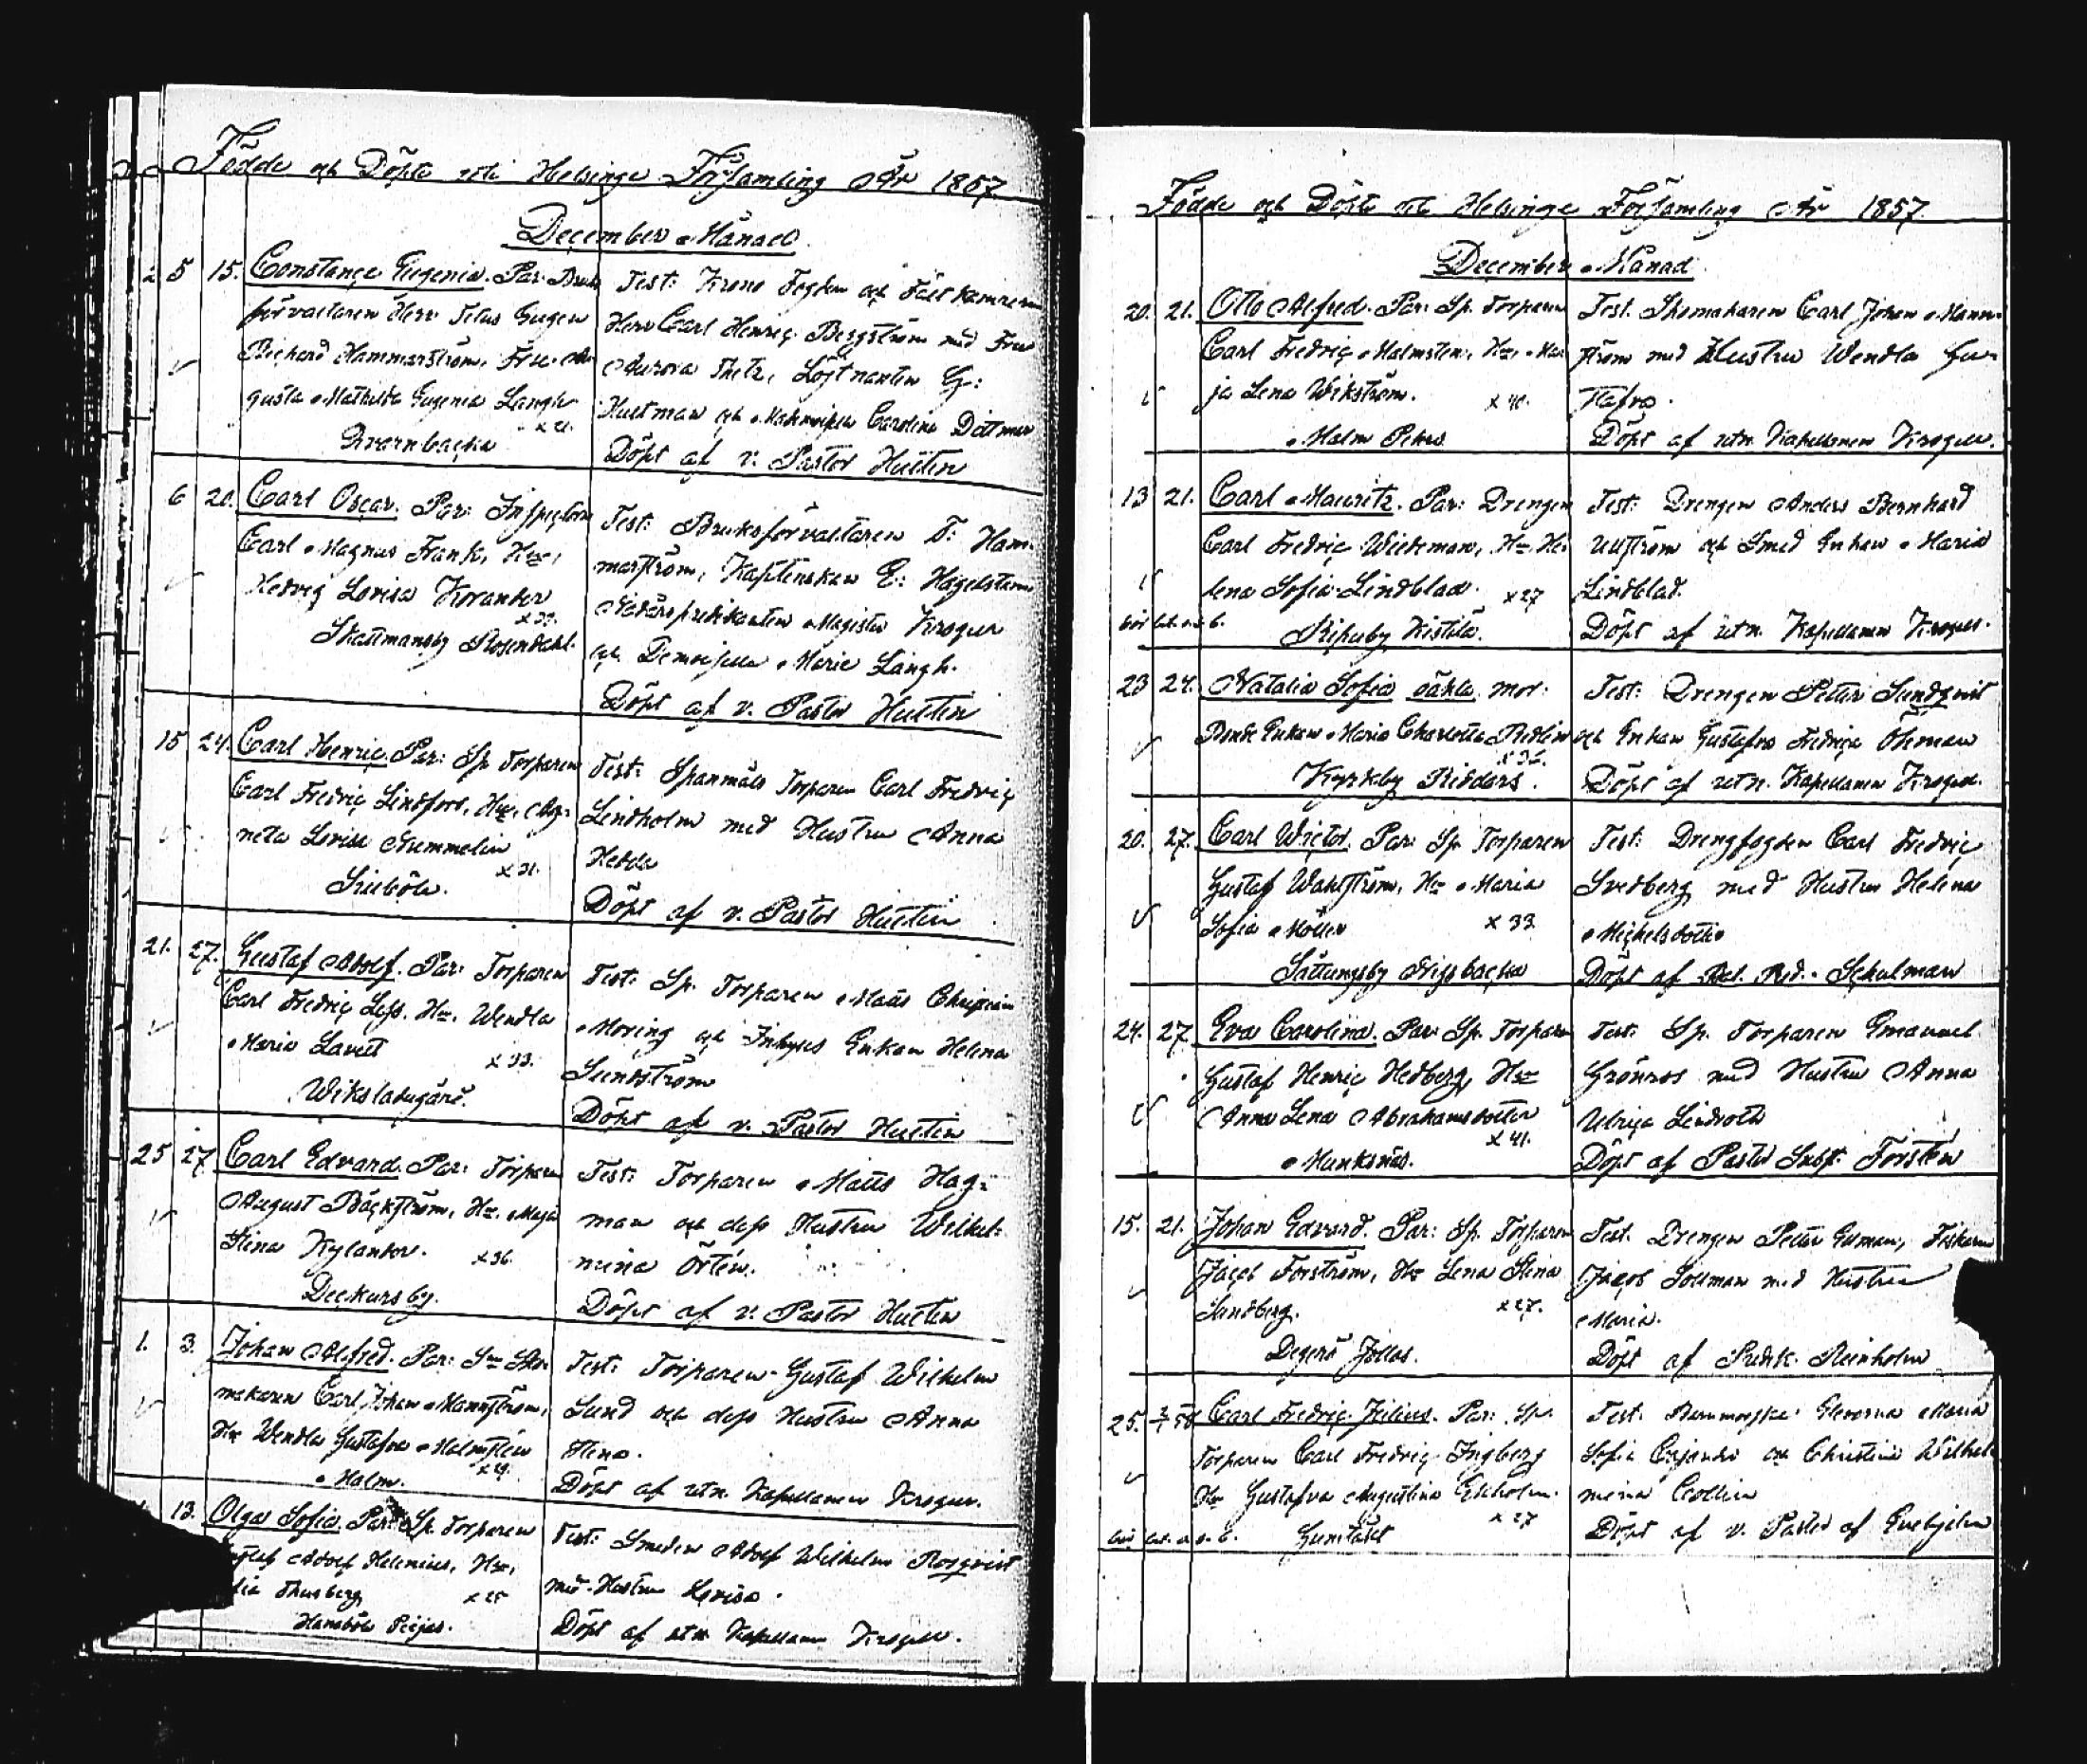 Födde och Döpte uti Helsinge Församling År 1857
December Månad.
5 15. Constance Eugenia. Par: Bruks
förvaltaren Herr Titus Eugen
Richard Hammarström, Fru Au
gusta Mathilda Eugenia Langh
x 21.
Qvarnbacka
Test: Krono Fogden och
Herr Carl Henric Bergström med Fru
Aurora Löjtnanten G:
Hultman och Caroline Dittmar
Döpt af v. Pastor Hultin
6 20. Carl Oscar. Par: Inspectorn
Carl Magnus Frank, Hu,
Hedvig Lovisa Korander
x 33.
Skattmansby Rosendahl.
Test: Bruksförvaltaren T: Ham-
marström, Kaptenskan E: Hagelstam
Magister Krogell
och Marie Langh.
Döpt af v. Pastor Hultin
15 24. Carl Henric. Par: Sp Torparen
Carl Fredric Lindfors, Hu, Ag-
neta Lovisa
x 31.
Test: Spanmåls Torparen Carl Fredric
Lindholm med Hustru Anna
Hedda
Döpt af v. Pastor Hultin
21. 27. Gustaf Adolf. Par: Torparen
Carl Fredric Hu. Wendla
Maria
x 33.
Wiksladugård.
Test: Sp. Torparen Matts Christian
Moring och Inhyses Enkan Helena
Sundström
Döpt af v. Pastor Hultin
25 27 Carl Edvard. Par: Torparen
August Bäckström, Hu. Maja
Stina Kylander. x 36.
Deckursby.
Test: Torparen Matts Hag-
man och dess Hustru Wilhel-
mina Örtén.
Döpt af v. Pastor Hultin
1. 3. Johan Alfred. Par: Sn Sko-
makaren Carl Johan Mannström,
Hu Wendla Gustafva Malmstén
x 29.
Malm.
Test: Torparen Gustaf Wilhelm
Lund och dess Hustru Anna
Stina.
Döpt af utn. Kapellanen Krogell.
13. Olga Sofia. Par: Sp Torparen
Adolf Helenius, Hu,
Thusberg x 25
Hanaböle Peijas.
Test: Smeden Adolf Wilhelm Rosqvist
med Hustru Lovisa.
Döpt af utn Kapellanen Krogell.
Födde och Döpte uti Helsinge Församling År 1857.
December Månad.
20. 21. Otto Alfred. Par: Sp. Torparen
Carl Fredric Malmsten, Hu, Ma
ja Lena Wikström. x 40.
Malm Pekas
Test. Skomakaren Carl Johan Mann-
ström med Hustru Wendla Gu-
stafva.
Döpt af utn. Kapellanen Krogell.
13 21. Carl Mauritz. Par: Drengen
Carl Fredric Wideman, Hu He-
lena Sofia Lindblad. x 27
Test: Drengen Anders Bernhard
Ullström och Smed Enkan Maria
Lindblad.
Döpt af utn. Kapellanen Krogell.
23 24. Natalia Sofia oäkta. mor:
Bonde Enkan Maria Charlotta
x 36.
Kyrkby Riddars.
Test: Drengen Petter Sundqvist
och Enkan Gustafva Fredrica Öhman
Döpt af utn. Kapellanen Krogell.
20. 27. Carl Wictor. Par: Sp. Torparen
Gustaf Wahlström, Hu Maria
Sofia Möller x 33
Sottungsby Nissbacka
Test: Drengfogden Carl Fredric
Svedberg med Hustru Helena
Michelsdotter
Döpt af Schulman
24. 27 Eva Carolina. Par: Sp. Torparen
Gustaf Henric Hedberg, Hu
Anna Lena Abrahamsdotter
x 41.
Munksnäs.
Test: Sp. Torparen Emanuel
Grönros med Hustru Anna
Ulrica Lindroth
Döpt af Pastor Forstén
15. 21. Johan Edvard. Par: Sp. Torparen
Jacob Forström, Hu Lena Stina
Sandberg. x 27.
Degerö Jollas.
Test. Drengen Petter Ekman, Fiskaren
Jacob Sollman med Hustru
Maria.
Döpt af Predik. Reinholm
25. 2/1 58 Carl Fredric Julius. Par: Sp.
Torparen Carl Fredric Ingberg
Hu Gustafva Augustina Ekholm.
x 27
Gumtäkt
Test: Maria
Sofia och Christina Wilhel-
mina Collin
Döpt af v. Pastor af Enehjelm